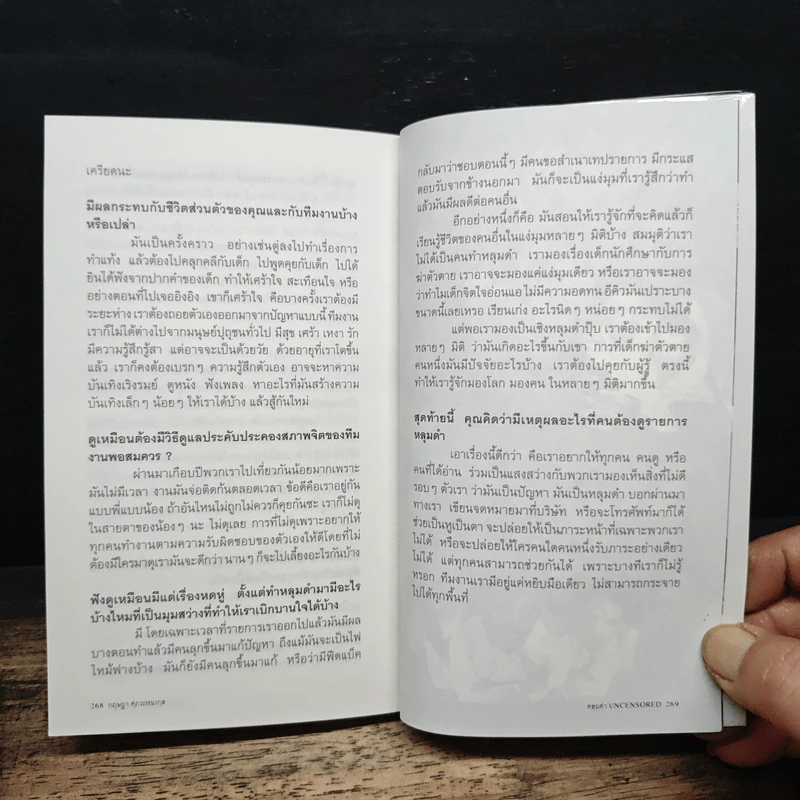 เครียดนะ
มีผลกระทบกับชีวิตส่วนตัวของคุณและกับทีมงานบ้าง
หรือเปล่า
มันเป็นครั้งคราว อย่างเช่นตู่ลงไปทำเรื่องการ
ทำแท้ง แล้วต้องไปคลุกคลีกับเด็ก ไปพูดคุยกับเด็ก ไปได้
ยินได้ฟังจากปากคำของเด็ก ทำให้เศร้าใจ สะเทือนใจ หรือ
อย่างตอนที่ไปเจออิงอิง เขาก็เศร้าใจ คือบางครั้งเราต้องมี
ระยะห่าง เราต้องถอยตัวเองออกมาจากปัญหาแบบนี้ ทีมงาน
เราก็ไม่ได้ต่างไปจากมนุษย์ปุถุชนทั่วไป มีสุข เศร้า เหงา รัก
มีความรู้สึกรู้สา แต่อาจจะเป็นด้วยวัย ด้วยอายุที่เราโตขึ้น
แล้ว เราก็คงต้องเบรกๆ ความรู้สึกตัวเอง อาจจะหาความ
บันเทิงเริงรมย์ ดูหนัง ฟังเพลง หาอะไรที่มันสร้างความ
บันเทิงเล็กๆ น้อยๆ ให้เราได้บ้าง แล้วสู้กันใหม่
ดูเหมือนต้องมีวิธีดูแลประคับประคองสภาพจิตของทีม
งานพอสมควร ?
ผ่านมาเกือบปีพวกเราไปเที่ยวกันน้อยมากเพราะ
มันไม่มีเวลา งานมันจ่อติดก้นตลอดเวลา ข้อดีคือเราอยู่กัน
แบบพี่แบบน้อง ถ้าอันไหนไม่ถูกไม่ควรก็คุยกันซะ เราก็ไม่ดุ
ในสายตาของน้องๆ นะ ไม่ดุเลย การที่ไม่ดุเพราะอยากให้
ทุกคนทำงานตามความรับผิดชอบของตัวเองให้ดีโดยที่ไม่
ต้องมีใครมาดุเรามันจะดีกว่า นานๆ ก็จะไปเลี้ยงอะไรกันบ้าง
ฟังดูเหมือนมีแต่เรื่องหดหู่ ตั้งแต่ทำหลุมดำมามีอะไร
บ้างไหมที่เป็นมุมสว่างที่ทำให้เราเบิกบานใจได้บ้าง
มี โดยเฉพาะเวลาที่รายการเราออกไปแล้วมันมีผล
บางตอนทำแล้วมีคนลุกขึ้นมาแก้ปัญหา ถึงแม้มันจะเป็นไฟ
ไหม้ฟางบ้าง มันก็ยังมีคนลุกขึ้นมาแก้ หรือว่ามีฟีดแบ็ค
268 กฤษฎา ศุภวรรธนะกุล
กลับมาว่าชอบตอนนี้ๆ มีคนขอสำเนาเทปรายการ มีกระแส
ตอบรับจากข้างนอกมา มันก็จะเป็นแง่มุมที่เรารู้สึกว่าทำ
แล้วมันมีผลดีต่อคนอื่น
อีกอย่างหนึ่งก็คือ มันสอนให้เรารู้จักที่จะคิดแล้วก็
เรียนรู้ชีวิตของคนอื่นในแง่มุมหลายๆ มิติบ้าง สมมุติว่าเรา
ไม่ได้เป็นคนทำหลุมดำ เรามองเรื่องเด็กนักศึกษากับการ
ฆ่าตัวตาย เราอาจจะมองแค่แง่มุมเดียว หรือเราอาจจะมอง
ว่าทำไมเด็กจิตใจอ่อนแอ ไม่มีความอดทน อีคิวมันเปราะบาง
ขนาดนี้เลยเหรอ เรียนเก่ง อะไรนิดๆ หน่อยๆ กระทบไม่ได้
แต่พอเรามองเป็นเชิงหลุมดำปุ๊บ เราต้องเข้าไปมอง
หลายๆ มิติ ว่ามันเกิดอะไรขึ้นกับเขา การที่เด็กฆ่าตัวตาย
คนหนึ่งมันมีปัจจัยอะไรบ้าง เราต้องไปคุยกับผู้รู้ ตรงนี้
ทำให้เรารู้จักมองโลก มองคน ในหลายๆ มิติมากขึ้น
สุดท้ายนี้ คุณคิดว่ามีเหตุผลอะไรที่คนต้องดูรายการ
หลุมดำ
เอาเรื่องนี้ดีกว่า คือเราอยากให้ทุกคน คนดู หรือ
คนที่ได้อ่าน ร่วมเป็นแสงสว่างกับพวกเรามองเห็นสิ่งที่ไม่ดี
รอบๆ ตัวเรา ว่ามันเป็นปัญหา มันเป็นหลุมดำ บอกผ่านมา
ทางเรา เขียนจดหมายมาที่บริษัท หรือจะโทรศัพท์มาก็ได้
ช่วยเป็นหูเป็นตา จะปล่อยให้เป็นภาระหน้าที่เฉพาะพวกเรา
ไม่ได้ หรือจะปล่อยให้ใครคนใดคนหนึ่งรับภาระอย่างเดียว
ไม่ได้ แต่ทุกคนสามารถช่วยกันได้ เพราะบางทีเราก็ไม่รู้
หรอก ทีมงานเรามีอยู่แค่หยิบมือเดียว ไม่สามารถกระจาย
ไปได้ทุกพื้นที่
หลุมดำ UNCENSORED 269